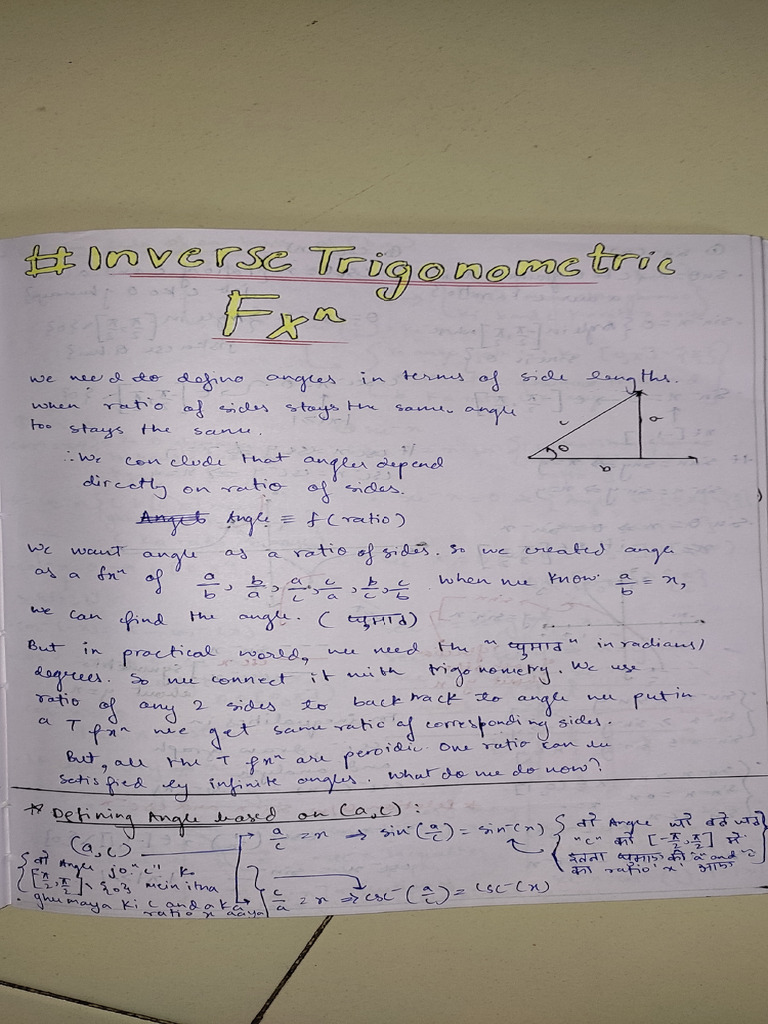 # Inverse Trigonometric
Fxⁿ
we need to define angles in terms of side lengths.
when ratio of sides stays the same, angle
too stays the same.
c
a
θ
b
∴ We conclude that angles depend
directly on ratio of sides.
Angle ≡ f(ratio)
We want angle as a ratio of sides. So we created angle
as a fxⁿ of a/b, b/a, a/c, c/a, b/c, c/b. When we know a/b = x,
we can find the angle. (घुमाव)
But in practical world, we need the "घुमाव" in radians/
degrees. So we connect it with trigonometry. We use
ratio of any 2 sides to backtrack to angle we put in
a T fxⁿ we get same ratio of corresponding sides.
But, all the T fxⁿ are peroidic. One ratio can be
satisfied by infinite angles. What do we do now?
* Defining Angle based on (a,c):
(a,c)
a/c = x ⇒ sin⁻(a/c) = sin⁻(x)
{ वो Angle जो
"c" को [-π/2, π/2] में
इतना घुमाए की "a" and "c"
का ratio 'x' आए
{ वो Angle jo "c" ko
[-π/2, π/2] \ {0} mein itna
ghumaya ki c and a ka
ratio x aaya
c/a = x ⇒ csc⁻(a/c) = csc⁻(x)